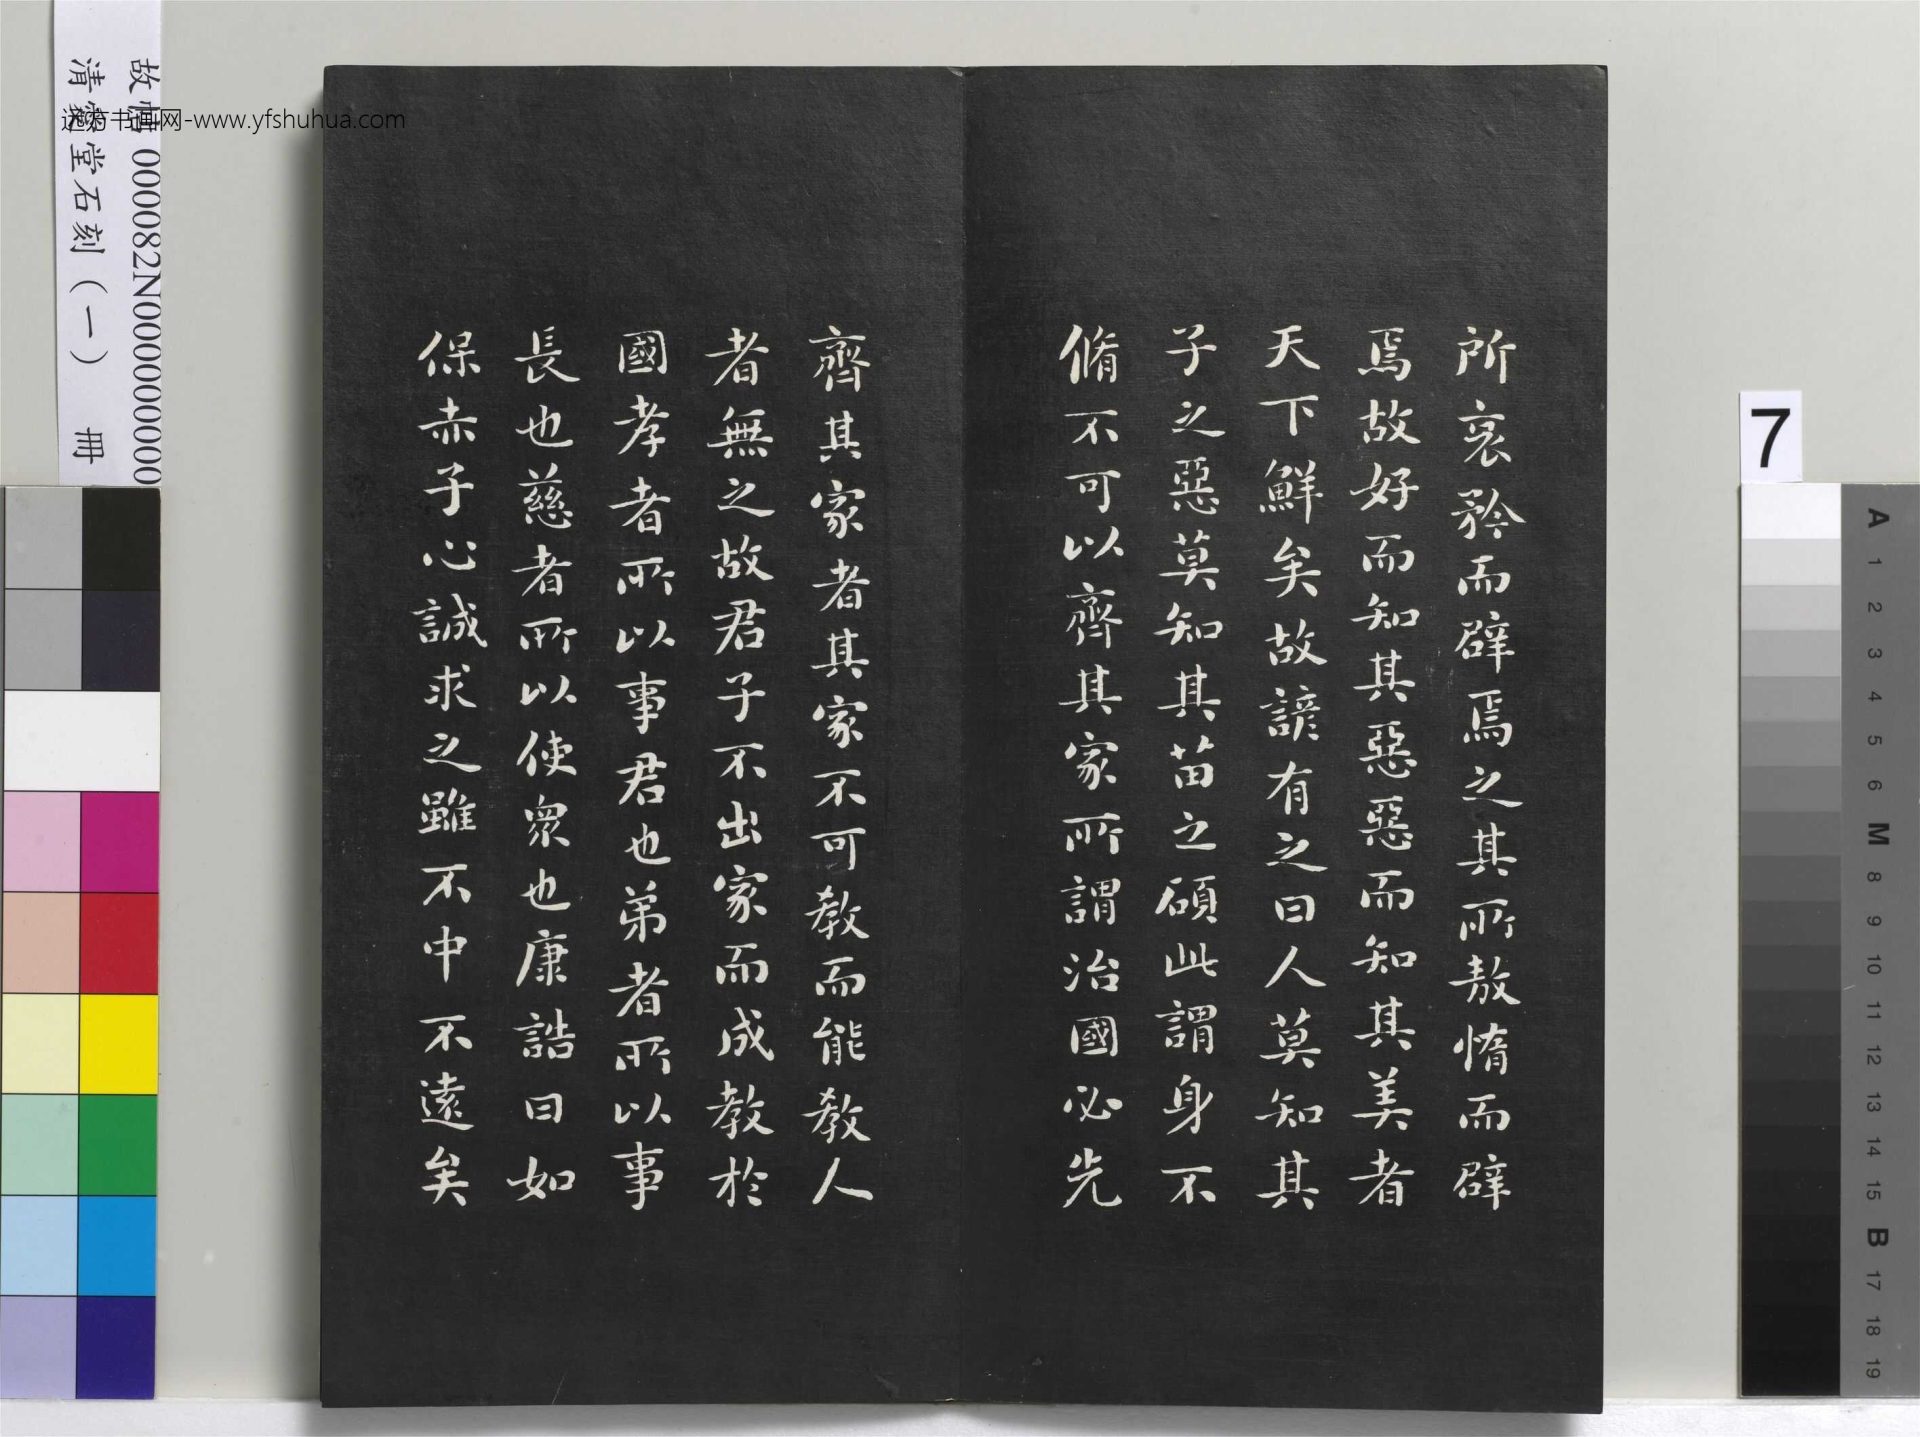 所哀矜而辟焉之其所敖惰而辟
焉故好而知其惡惡而知其美者
天下鮮矣故諺有之曰人莫知其
子之惡莫知其苗之碩此謂身不
脩不可以齊其家所謂治國必先
齊其家者其家不可教而能教人
者無之故君子不出家而成教於
國孝者所以事君也弟者所以事
長也慈者所以使衆也康誥曰如
保赤子心誠求之雖不中不遠矣
故帖 000082N000000000
清愛堂石刻（一） 冊
书画网-www.yfshuhua.com
7
A
1
2
3
4
5
6
M
8
9
10
11
12
13
14
15
B
17
18
19